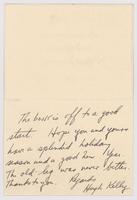 The bow is off to a good
start. Hope you and yours
have a splendid holiday
season and a good New Year.
The old leg was never better.
Thanks to you. Regards
Hugh Kelly